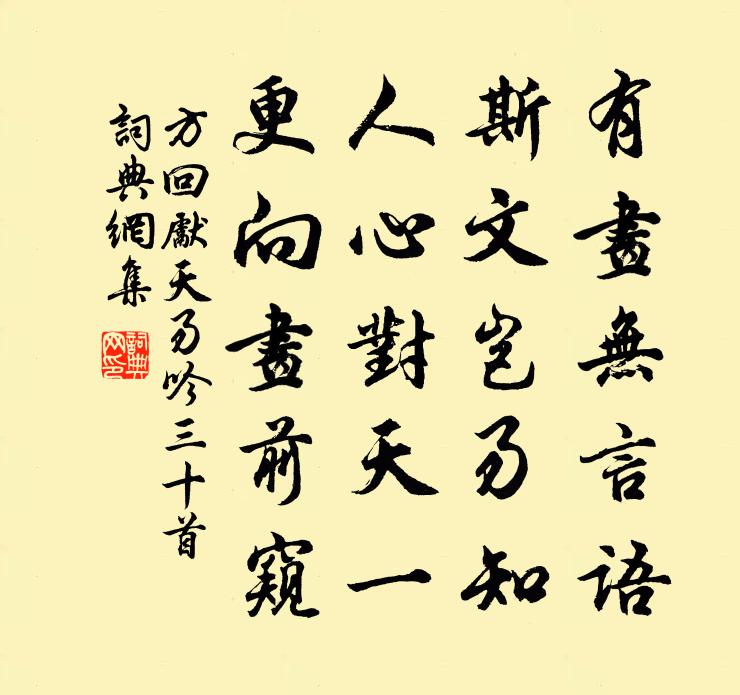 有畫無言語
斯文豈易知
人心對天一
更向畫前窺
方回獻天易吟三十首
詞典網集
詞典
网印